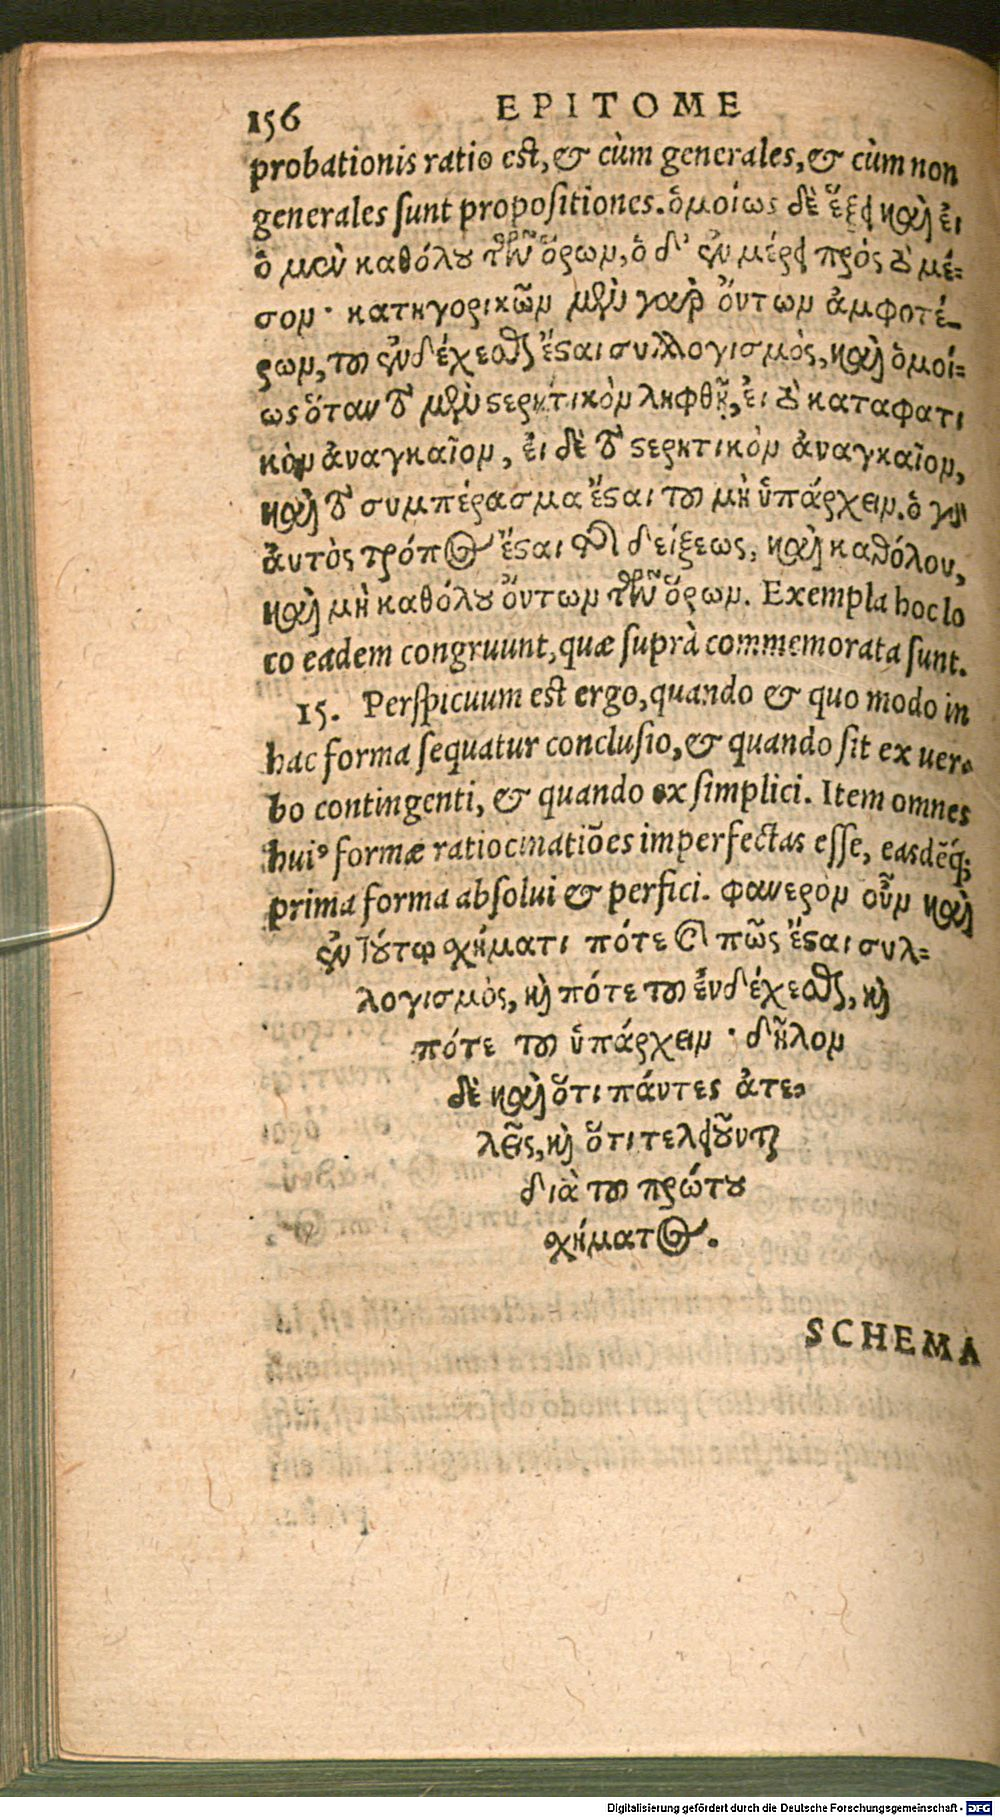 156 EPITOME
probationis ratio est, & cùm generales, & cùm non
generales sunt propositiones. ὁμοίως δὲ ἕξει καὶ εἰ
ὁ μὲν καθόλου τῶν ὅρων, ὁ δ' ἐν μέρει πρὸς τὸ μέ-
σον· κατηγορικῶν μὲν γὰρ ὄντων ἀμφοτέ-
ρων, τοῦ ἐνδέχεσθαι ἔσται συλλογισμὸς, καὶ ὁμοί-
ως ὅταν τὸ μὲν στερητικὸν ληφθῇ, εἰ τὸ καταφατι
κὸν ἀναγκαῖον, εἰ δὲ τὸ στερητικὸν ἀναγκαῖον,
καὶ τὸ συμπέρασμα ἔσται τοῦ μὴ ὑπάρχειν. ὁ γὰρ
αὐτὸς τρόπος ἔσται τῆς δείξεως, καὶ καθόλου,
καὶ μὴ καθόλου ὄντων τῶν ὅρων. Exempla hoc lo
co eadem congruunt, quæ suprà commemorata sunt.
15. Perspicuum est ergo, quando & quo modo in
hac forma sequatur conclusio, & quando sit ex ver-
bo contingenti, & quando ex simplici. Item omnes
huiꝰ formæ ratiocinatiões imperfectas esse, easdēq́;
prima forma absolui & perfici. φανερὸν οὖν καὶ
ἐν τούτῳ σχήματι πότε καὶ πῶς ἔσται συλ-
λογισμὸς, καὶ πότε τοῦ ἐνδέχεσθαι, καὶ
πότε τοῦ ὑπάρχειν· δῆλον
δὲ καὶ ὅτι πάντες ἀτε-
λεῖς, καὶ ὅτι τελειοῦνται
διὰ τοῦ πρώτου
σχήματος.
SCHEMA
Digitalisierung gefördert durch die Deutsche Forschungsgemeinschaft - DFG